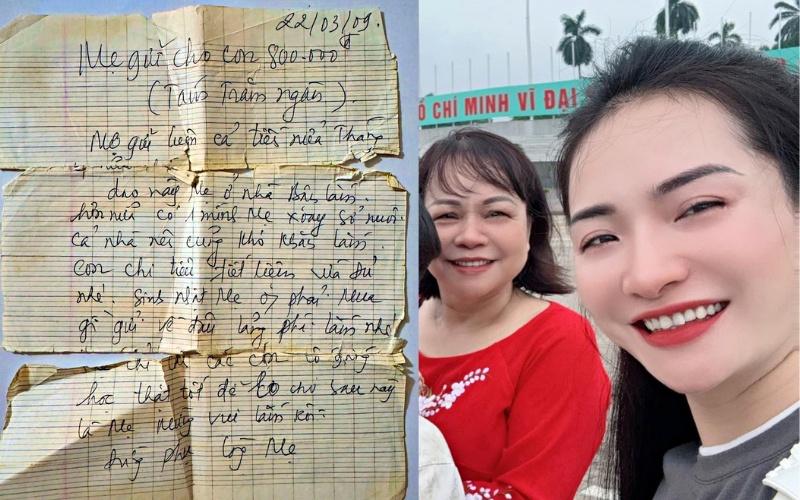 22/03/09.
Mẹ gửi cho con 800.000đ
(Tám Trăm ngàn).
Mẹ gửi luôn cả tiền nửa Tháng
dạo này Mẹ ở nhà bận lắm.
hơn nữa có 1 mình Mẹ xoay sở nuôi
cả nhà nên cũng khó khăn lắm.
con chi tiêu tiết kiệm và đủ
nhé. Sinh nhật Mẹ ko phải mua
gì gửi về đâu lãng phí lắm nhé
chỉ các con cố gắng
học thật tốt để lo cho sau này
là Mẹ mừng vui lắm rồi.
Đừng phụ lòng Mẹ
Ồ CHÍ MINH VĨ ĐẠI